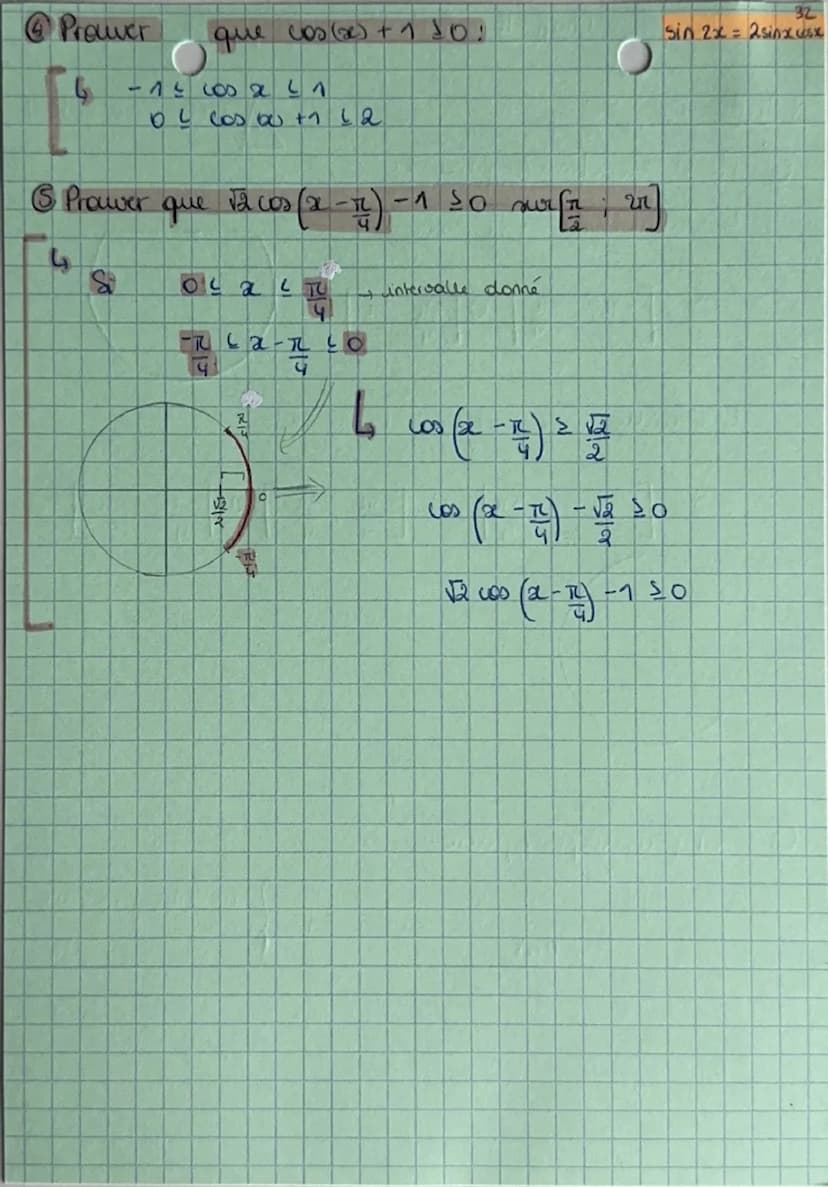 32
④ Prouver que cos(x) + 1 ≥ 0 :
sin 2x = 2 sin x cos x
↳ -1 ≤ cos x ≤ 1
0 ≤ cos(x) + 1 ≤ 2
⑤ Prouver que √2 cos(x - π/4) - 1 ≥ 0 sur [π/2 ; 2π]
↳
Si 0 ≤ x ≤ π/4 → intervalle donné
-π/4 ≤ x - π/4 ≤ 0
π/4
↳ cos(x - π/4) ≥ √2/2
√2/2
0
cos(x - π/4) - √2/2 ≥ 0
-π/4
√2 cos(x - π/4) - 1 ≥ 0